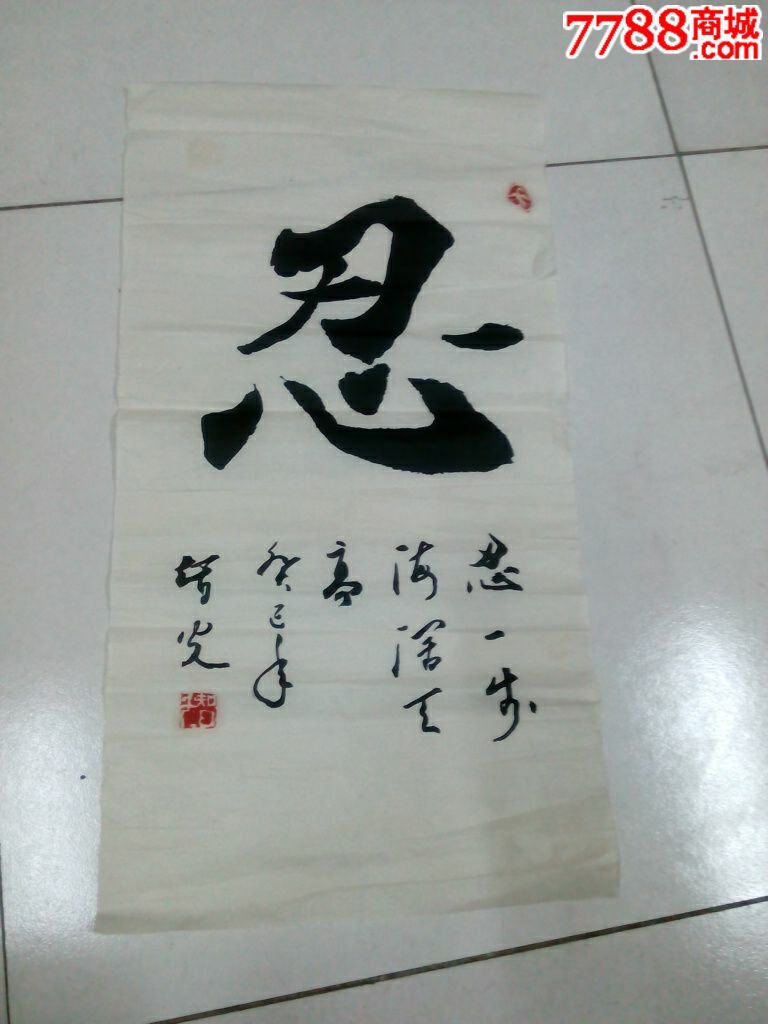 7788商城
.com
忍
忍一步
海阔天
高
癸巳年
智光